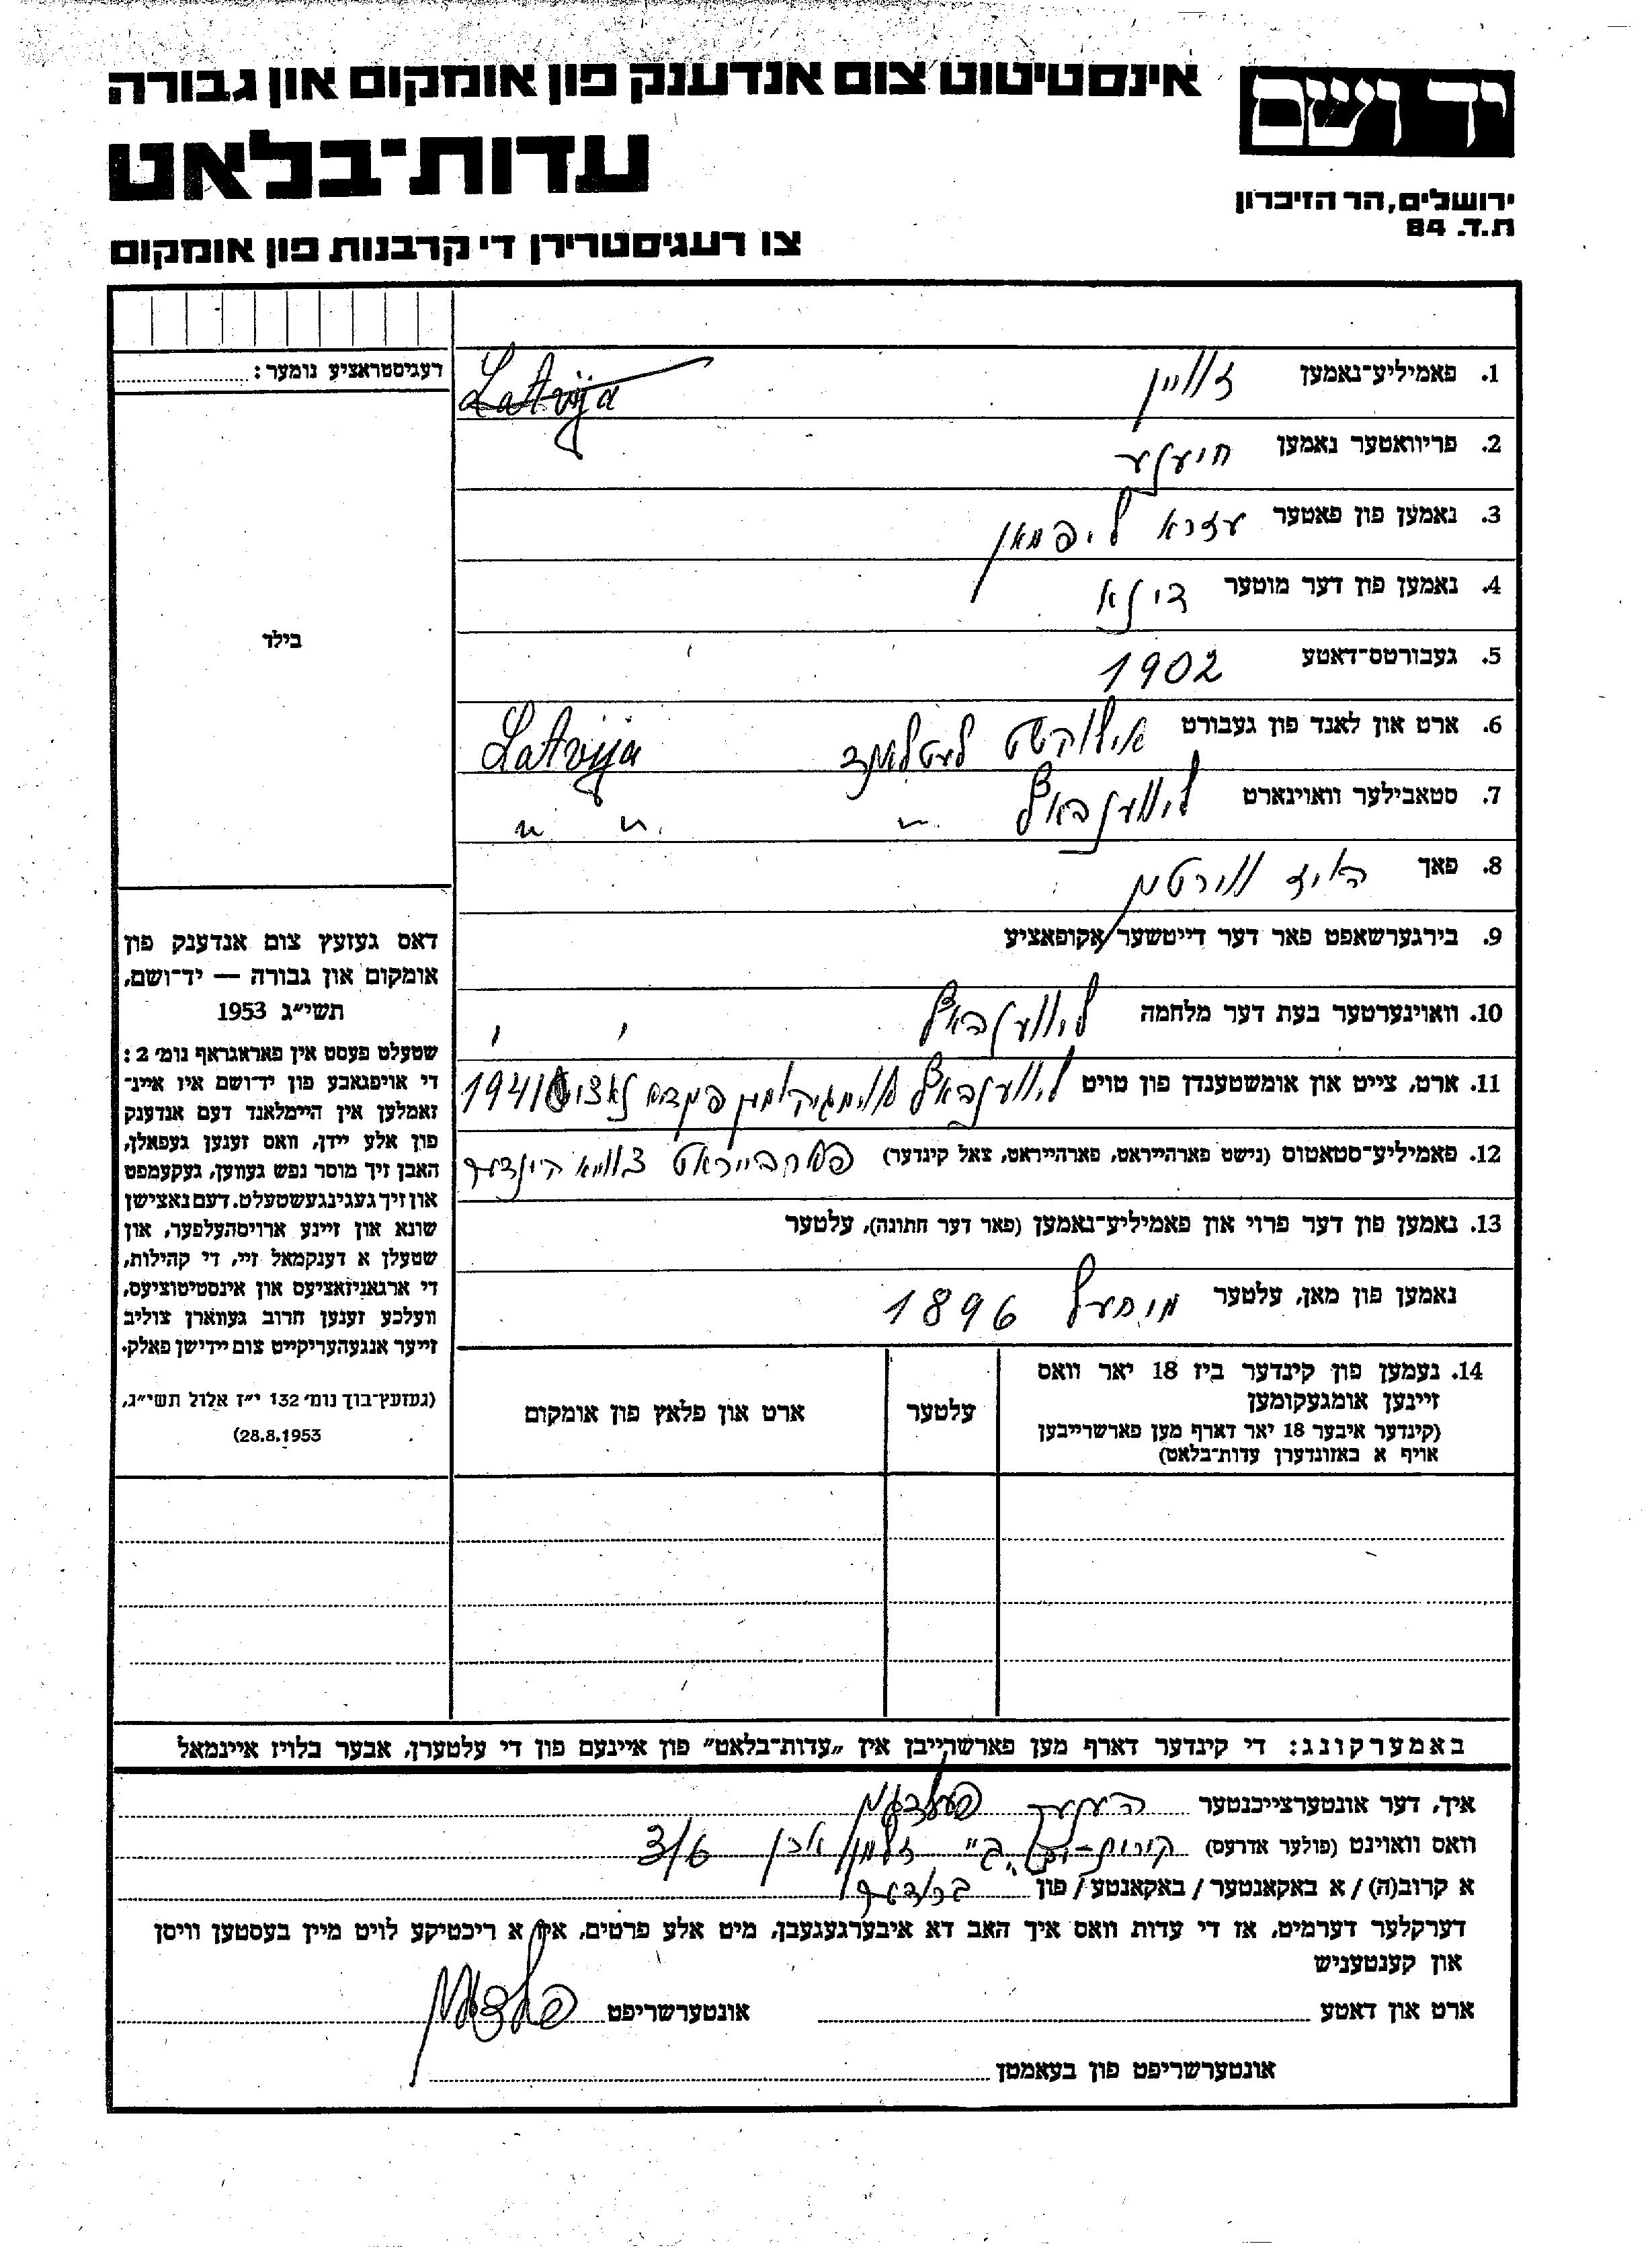 אינסטיטוט צום אנדענק פון אומקום און גבורה
יד ושם
עדות־בלאט
ירושלים, הר הזיכרון
ת.ד. 84
צו רעגיסטרירן די קרבנות פון אומקום
רעגיסטראציע נומער:
בילד
דאס געזעץ צום אנדענק פון
אומקום און גבורה — יד־ושם,
תשי״ג 1953
שטעלט פעסט אין פאראגראף נומ׳ 2:
די אויפגאבע פון יד־ושם איז איינ־
זאמלען אין היימלאנד דעם אנדענק
פון אלע יידן, וואס זענען געפאלן,
האבן זיך מוסר נפש געווען, געקעמפט
און זיך געגינגעשטעלט. דעם נאצישן
שונא און זיינע ארויסהעלפער, און
שטעלן א דענקמאל זיי, די קהילות,
די ארגאניזאציעס און אינסטיטוציעס,
וועלכע זענען חרוב געווארן צוליב
זייער אנגעהעריקייט צום יידישן פאלק.
(געזעץ־בוך נומ׳ 132 י״ז אלול תשי״ג,
28.8.1953)
1. פאמיליע־נאמען זלווין Latvija
2. פריוואטער נאמען חיענע
3. נאמען פון פאטער עזרא ליפמאן
4. נאמען פון דער מוטער דינא
5. געבורטס־דאטע 1902
6. ארט און לאנד פון געבורט אילוקשט לעטלאנד Latvija
7. סטאבילער וואוינארט ליווענהאף " " "
8. פאך הויז ווירטין
9. בירגערשאפט פאר דער דייטשער אקופאציע
10. וואוינערטער בעת דער מלחמה ליווענהאף " "
11. ארט, צייט און אומשטענדן פון טויט ליווענהאף 1941
12. פאמיליע־סטאטוס (נישט פארהייראט, פארהייראט, צאל קינדער) פארהייראט צווייא קינדער
13. נאמען פון דער פרוי און פאמיליע־נאמען (פאר דער חתונה), עלטער
נאמען פון מאן, עלטער מיכעל 1896
14. נעמען פון קינדער ביז 18 יאר וואס
זיינען אומגעקומען
(קינדער איבער 18 יאר דארף מען פארשרייבען
אויף א באזונדערן עדות־בלאט)
עלטער
ארט און פלאץ פון אומקום
באמערקונג: די קינדער דארף מען פארשרייבן אין „עדות־בלאט״ פון איינעם פון די עלטערן, אבער בלויז איינמאל
איך, דער אונטערצייכנטער פעלדמאן
וואס וואוינט (פולער אדרעס) קורות־ 3/6
א קרוב(ה) / א באקאנטער / באקאנטע / פון ברודער
דערקלער דערמיט, אז די עדות וואס איך האב דא איבערגעגעבן, מיט אלע פרטים, איז א ריכטיקע לויט מיין בעסטען וויסן
און קענטעניש
ארט און דאטע אונטערשריפט פעלדמאן
אונטערשריפט פון בעאמטן